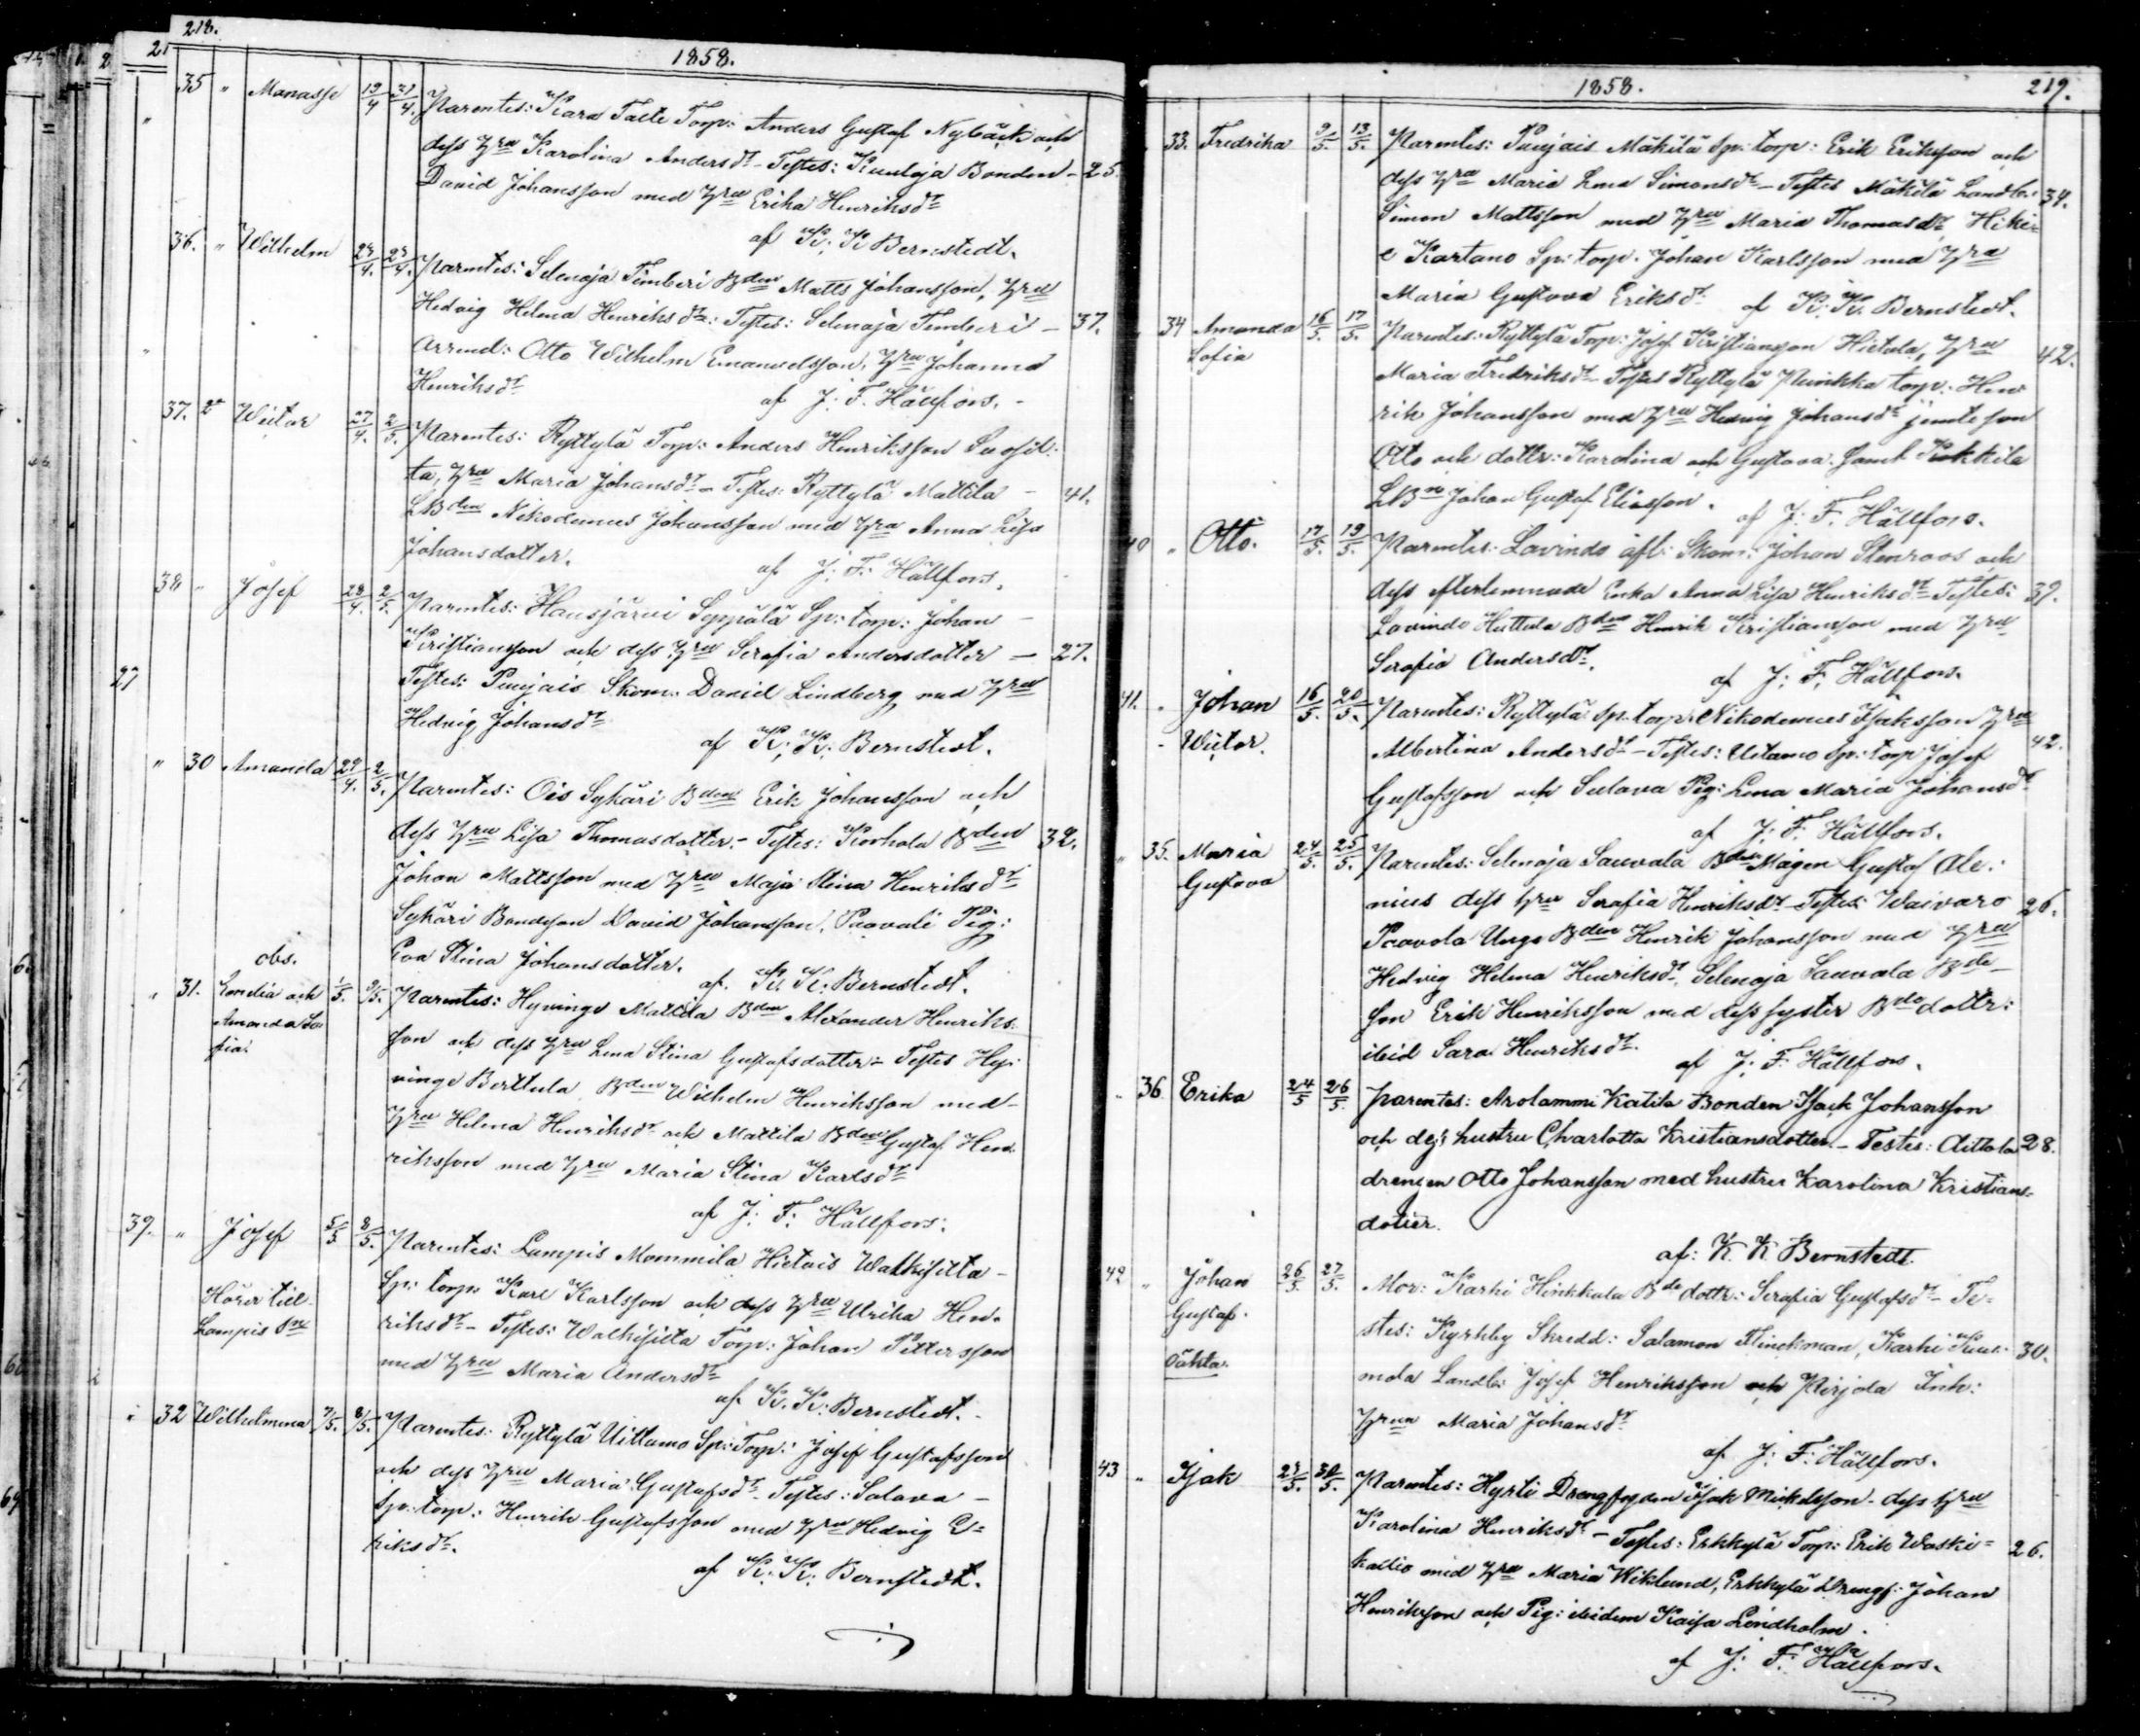 218.
1858.
35 " Manasse 19/4 31/4. Parentes: Kara Talte Torp: Anders Gustaf Nybäck och
dess Hru Karolina Andersdr - Testes: Kuuloja Bonden - 25.
David Johansson med Hru Erika Henriksdr
af K: K Bernstedt.
36. " Wilhelm 24/4. 24/4. Parentes: Selenoja Timberi Bden Matts Johansson, Hru
Hedvig Helena Henriksdr: Testes: Selenoja Timberi - 37.
Arrend: Otto Wilhelm Emanuelsson, Hru Johanna
Henriksdr af J: F. Hällfors. -
37. Wictor 27/4. 2/5. Parentes: Ryttylä Torp: Anders Henriksson Suosil:
ta, Hru Maria Johansdr - Testes: Ryttylä Mattila - 41.
LBden Nikodemus Johansson med Hru Anna Lisa
Johansdotter. af J: F: Hällfors.
38 " Josef 28/4. 2/5. Parentes: Hausjärvi Seppälä Sp: torp: Johan -
Kristiansson och dess Hru Serafia Andersdotter - 27.
27
Testes: Puujais Skom: David Lindberg med Hru
Hedvig Johansdr
af K: K: Bernstedt.
" 30 Amanda 29/4. 2/5. Parentes: Ois Sykäri Bden Erik Johansson och
dess Hru Lisa Thomasdotter. - Testes: Korhola Bden 32.
Johan Mattsson med Hru Maja Stina Henriksdr
Sykäri Bondeson David Johansson, Paavali Pig:
Eva Stina Johansdotter.
af. K: K: Bernstedt.
obs.
" 31. Emelia och 1/5. 2/5. Parentes: Hyvinge Mattila Bden Alexander Henriks:
Amanda So
fia.
son och dess Hru Lena Stina Gustafsdotter - Testes Hy:
vinge Berttula Bden Wilhelm Henriksson med -
Hru Helena Henriksdr och Mattila Bden Gustaf Hen:
riksson med Hru Maria Stina Karlsdr
af J: F: Hällfors.
39. " Josef 5/5 8/5. Parentes: Lampis Mommila Hietois Walkisilta -
Hörer till
Lampis
Sp: torp: Karl Karlsson och dess Hru Ulrika Hen-
riksdr - Testes: Walkisilta Torp: Johan Pettersson
med Hru Maria Andersdr
af K. K: Bernstedt. -
" 32 Wilhelmina 7/5. 8/5. Parentes: Ryttylä Uittamo Sp: Torp: Josef Gustafsson
och dess Hru Maria Gustafsdr - Testes: Salava -
Sp: torp: Henrik Gustafsson med Hru Hedvig E=
riksdr.
af K: K: Bernstedt.
1858. 219.
33. Fredrika 9/5. 13/5. Parentes: Puujais Mäkilä Sp: torp: Erik Eriksson och
dess Hru Maria Lena Simonsdr - Testes Mäkilä Landb: 34.
Simon Mattsson med Hru Maria Thomasdr, Hiki=
e Kartano Sp: torp. Johan Karlsson med Hru
Maria Gustava Eriksdr af K: K: Bernstedt.
34 Amanda 16/5. 17/5. Parentes: Ryttylä Torp: Josef Kristiansson Hietala, Hru
Sofia
42.
Maria Fredriksdr Testes Ryttylä Punkka torp: Hen=
rik Johansson med Hru Hedvig Johansdr jemte son
Otto och dottr: Karolina och Gustava. Samt Kokkila
LBn Johan Gustaf Eliasson. af J: F. Hällfors.
40 " Otto. 17/5. 19/5. Parentes: Lavinda afl: Skom: Johan Stenroos och
dess efterlemnade Enka Anna Lisa Henriksdr Testes: 39.
Lavinda Huttula Bden Henrik Kristiansson med Hru
Serafia Andersdr.
af J: F, Hällfors.
41. " Johan 16/5. 20/5. Parentes: Ryttylä Sp: torp: Nikodemus Isaksson Hru
Wictor.
42.
Albertina Andersdr - Testes: Uitamo Sp: torp Josef
Gustafsson och Sulava Pig: Lena Maria Johansdr
af J: F: Hällfors.
" 35. Maria 24/5. 25/5. Parentes: Selenoja Sauvala Bde Mågen Gustaf Ale:
Gustava
nius dess hru Serafia Henriksdr - Testes: Waivaro 26.
Paavola Unge Bden Henrik Johansson med Hru
Hedvig Helena Henriksdr, Selenoja Sauvala Bde -
son Erik Henriksson med dess syster Bde dottr:
ibid Sara Henriksdr.
af J: F. Hällfors.
" 36 Erika 24/5 26/5. Parentes: Arolammi Katila Bonden Isack Johansson
och dess hustru Charlotta Kristiansdotter - Testes: Aittola 28.
drengen Otto Johansson med hustru Karolina Kristians-
dotter.
af: K. K Bernstedt.
42 " Johan 26/5. 27/5. Mor: Karhi Hinkkala Bde dottr: Serafia Gustafsdr - Te=
Gustaf.
Oäkta.
stes: Kyrkby Skredd: Salamon Flinckman, Karhi Kuu: 30.
mola Landb: Josef Henriksson och Pirjola Inh:
Hrun Maria Johansdr
af J: F: Hällfors.
43 " Isak 29/5. 30/5. Parentes: Hyrli Drengfogden Isak Mickelsson - dess hru
Karolina Henriksdr - Testes: Erkkylä Torp: Erik Waski= 26.
kallio med Hru Maria Wiklund, Erkkylä Drengf: Johan
Henriksson och Pig: ibidem Kaisa Lindholm.
af J: F: Hällfors.